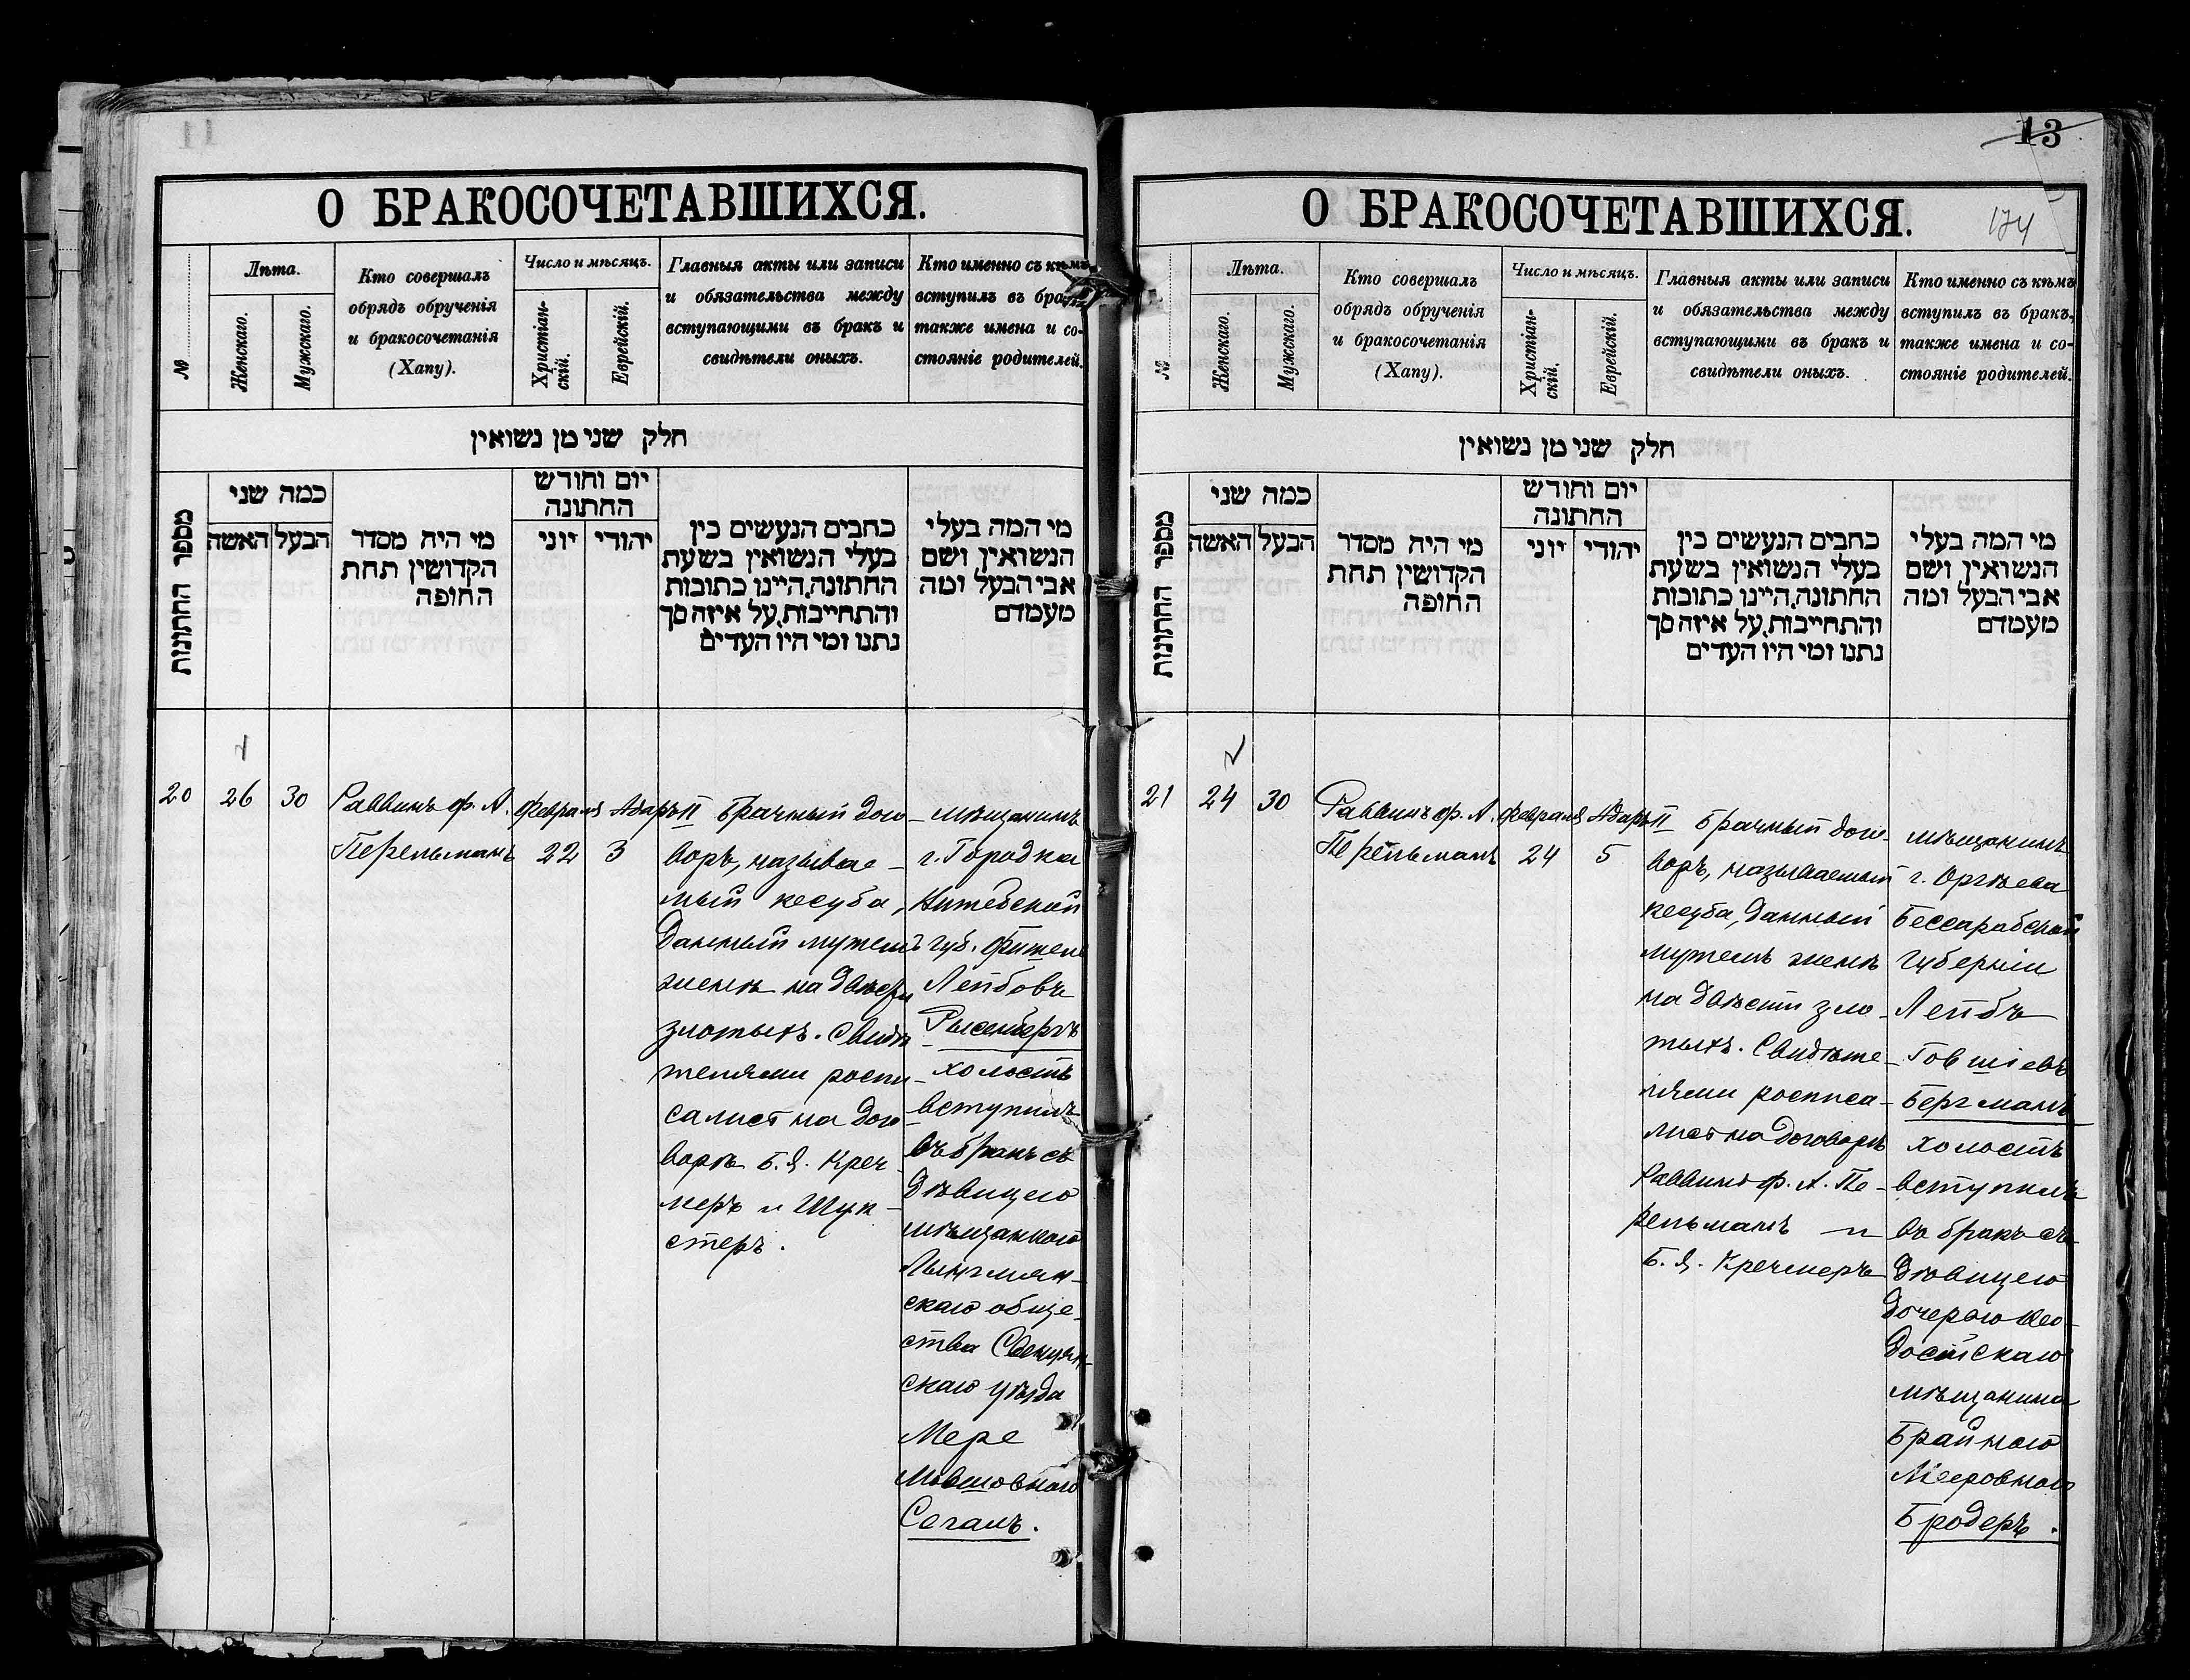 О БРАКОСОЧЕТАВШИХСЯ.
№
Лѣта.
Женскаго.
Мужскаго.
Кто совершалъ
обрядъ обрученія
и бракосочетанія
(Хапу).
Число и мѣсяцъ.
Христіан-
скій.
Еврейскій.
Главныя акты или записи
и обязательства между
вступающими въ бракъ и
свидѣтели оныхъ.
Кто именно съ кѣмъ
вступилъ въ бракъ,
также имена и со-
стояніе родителей.
חלק שני מן נשואין
מספר החתונות
כמה שני
האשה
הבעל
מי היה מסדר
הקדושין תחת
החופה
יום וחודש
החתונה
יוני
יהודי
כתבים הנעשים בין
בעלי הנשואין בשעת
החתונה, היינו כתובות
והתחייבות, על איזה סך
נתנו ומי היו העדים
מי המה בעלי
הנשואין ושם
אבי הבעל ומה
מעמדם
20
26
30
Раввинъ Ф. А.
Перельманъ
Февраля
22
Адаръ II
3
Брачный дого-
воръ, называе-
мый кесуба,
данный мужемъ
женѣ на двѣсти
злотыхъ. Свидѣ-
телями роспи-
сались на дого-
ворѣ Б. Я. Креч-
меръ и Шук-
стеръ.
мѣщанинъ
г. Городка
Витебской
губ.
Лейбовъ
холостъ
вступилъ
въ бракъ съ
дѣвицею
мѣщанкою
Лынгмян-
скаго обще-
ства Свенцян-
скаго уѣзда
Мере
Мовшовною
Сегалъ.
13
174
О БРАКОСОЧЕТАВШИХСЯ.
№
Лѣта.
Женскаго.
Мужскаго.
Кто совершалъ
обрядъ обрученія
и бракосочетанія
(Хапу).
Число и мѣсяцъ.
Христіан-
скій.
Еврейскій.
Главныя акты или записи
и обязательства между
вступающими въ бракъ и
свидѣтели оныхъ.
Кто именно съ кѣмъ
вступилъ въ бракъ,
также имена и со-
стояніе родителей.
חלק שני מן נשואין
מספר החתונות
כמה שני
האשה
הבעל
מי היה מסדר
הקדושין תחת
החופה
יום וחודש
החתונה
יוני
יהודי
כתבים הנעשים בין
בעלי הנשואין בשעת
החתונה, היינו כתובות
והתחייבות, על איזה סך
נתנו ומי היו העדים
מי המה בעלי
הנשואין ושם
אבי הבעל ומה
מעמדם
21
24
30
Раввинъ Ф. А.
Перельманъ
Февраля
24
Адаръ II
5
Брачный дого-
воръ, называемый
кесуба, данный
мужемъ женѣ
на двѣсти зло-
тыхъ. Свидѣте-
лями росписа-
лись на договорѣ
Раввинъ Ф. А. Пе-
рельманъ и
Б. Я. Кречмеръ
мѣщанинъ
г. Оргѣева
Бессарабской
Губерніи
Лейбъ
Говшіевъ
Бергманъ
холостъ
вступилъ
въ бракъ съ
дѣвицею
дочерью Ѳео-
досійскаго
мѣщанина
Брайною
Мееровною
Бродеръ.